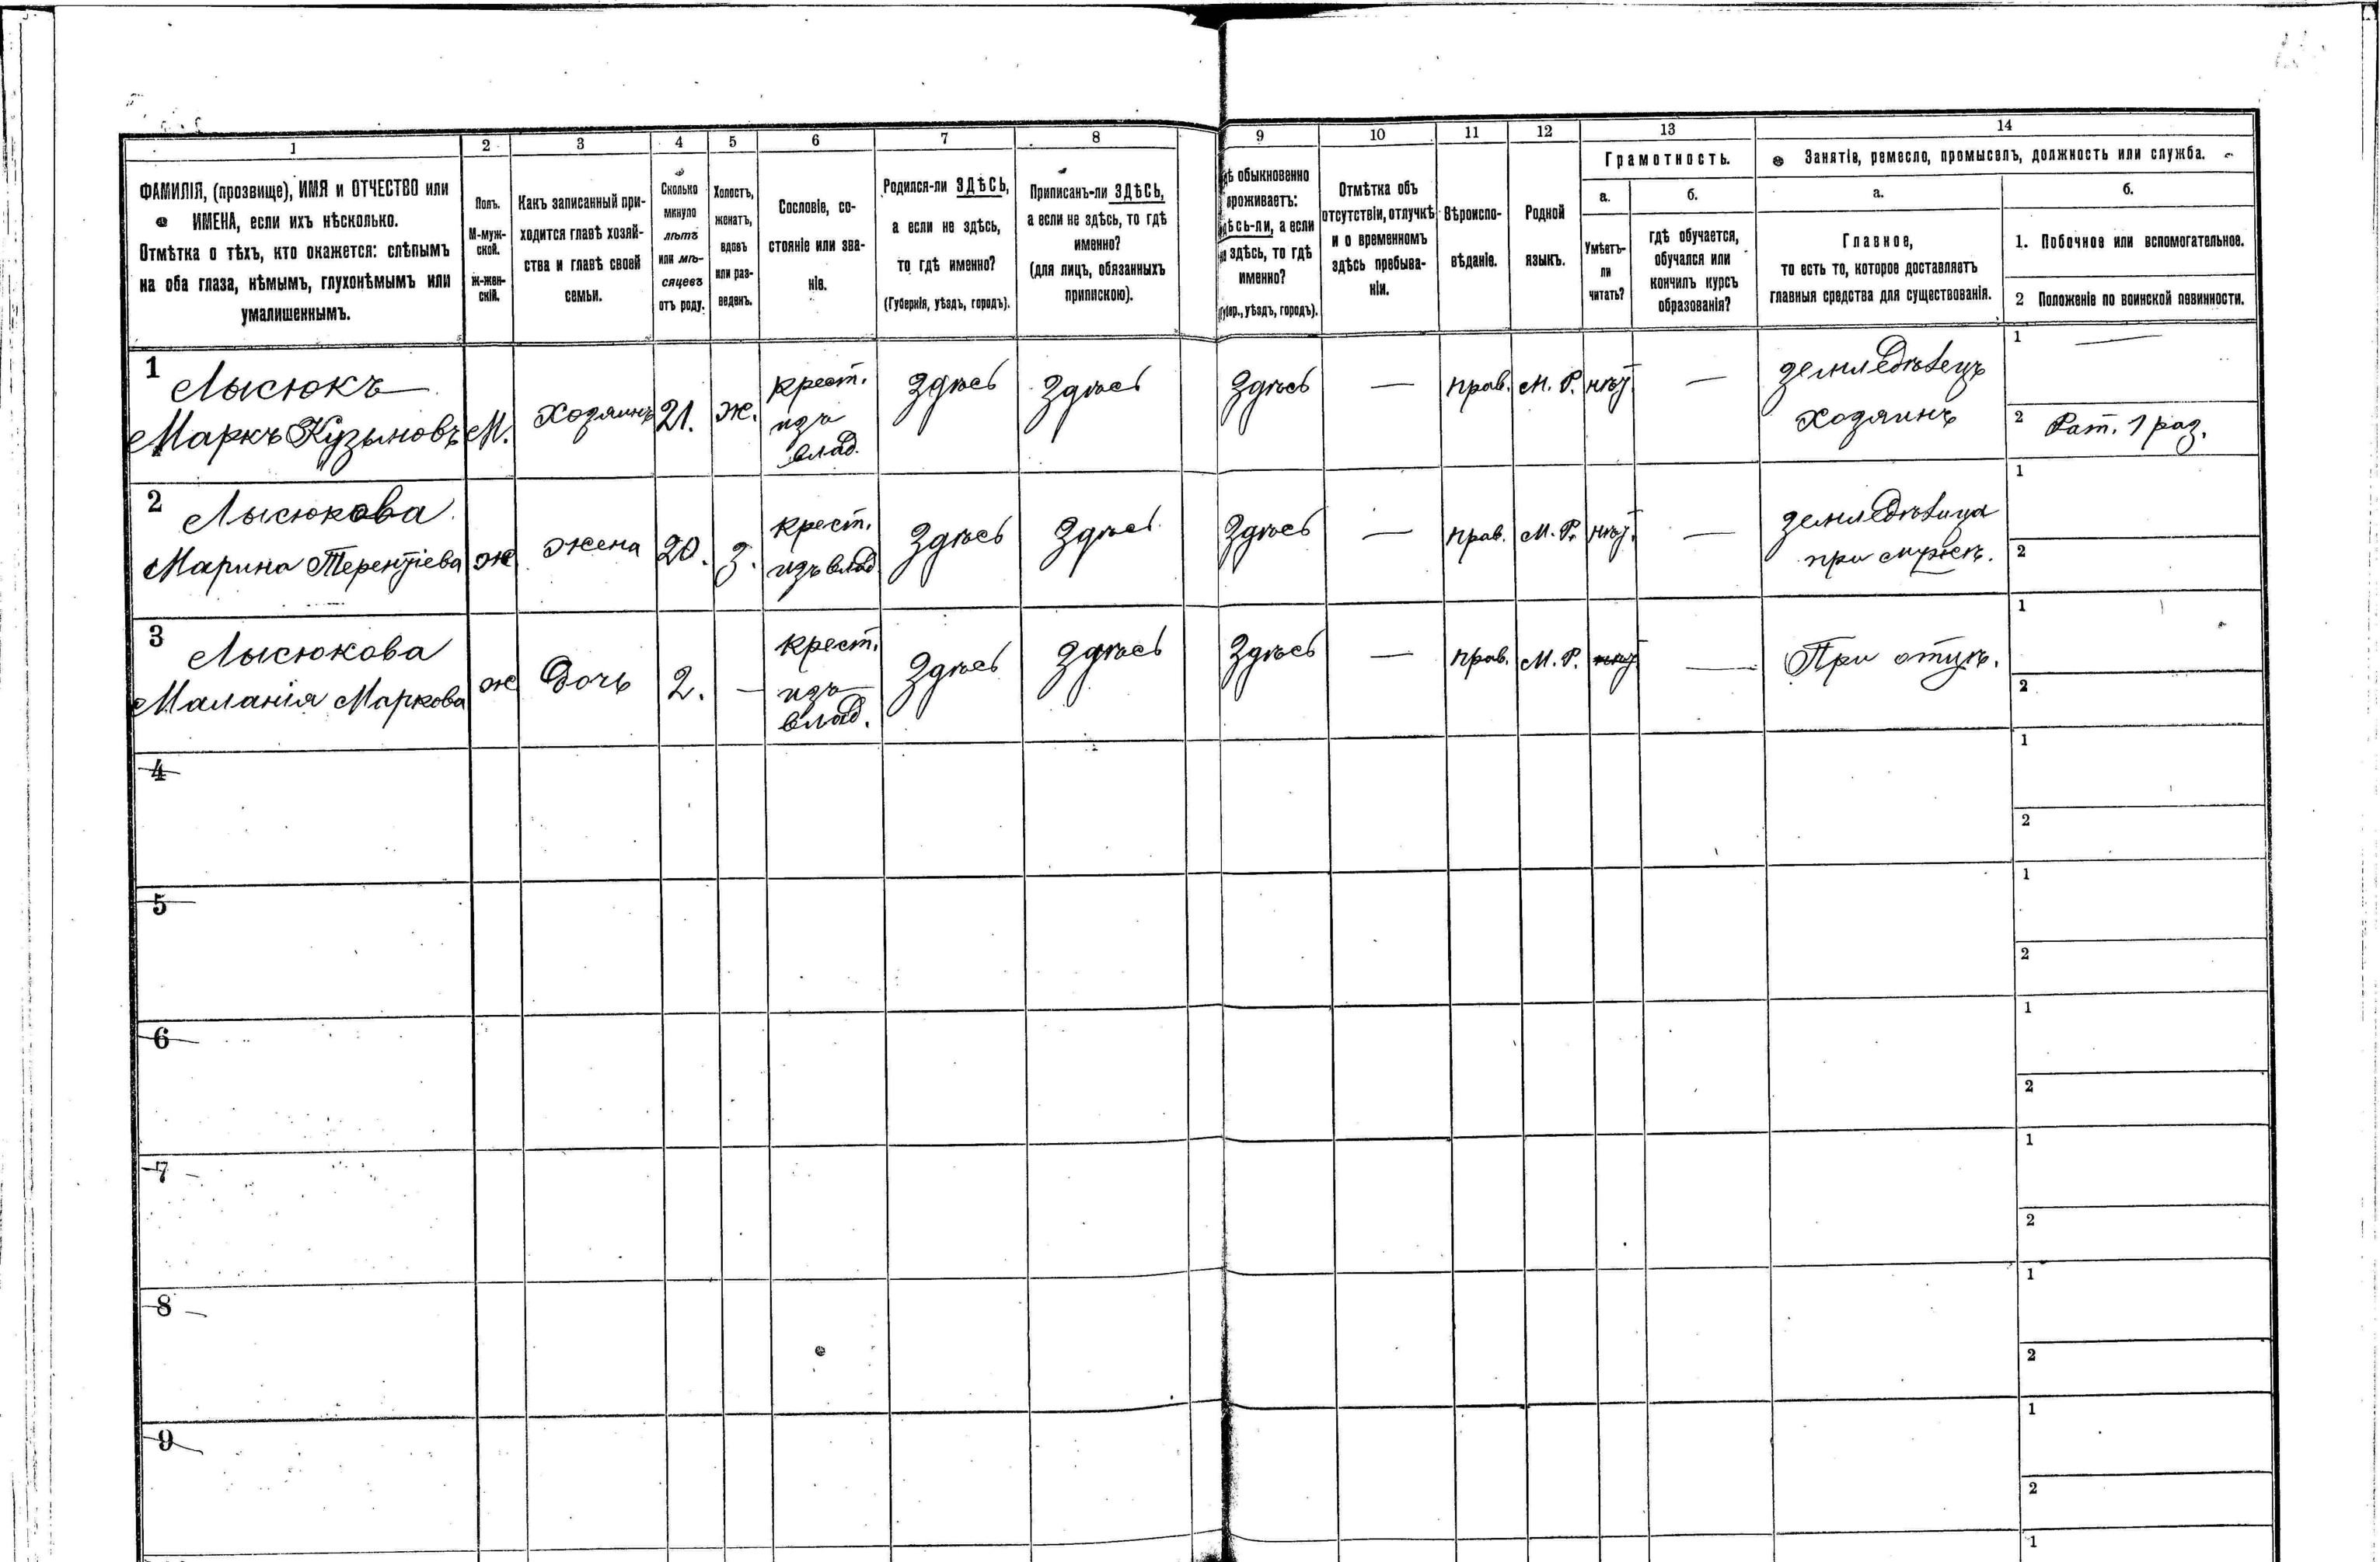 1 2 3 4 5 6 7 8 9 10 11 12 13 14
ФАМИЛІЯ, (прозвище), ИМЯ и ОТЧЕСТВО или
ИМЕНА, если ихъ нѣсколько.
Отмѣтка о тѣхъ, кто окажется: слѣпымъ
на оба глаза, нѣмымъ, глухонѣмымъ или
умалишеннымъ.
Полъ.
М-муж-
ской.
ж-жен-
скій.
Какъ записанный при-
ходится главѣ хозяй-
ства и главѣ своей
семьи.
Сколько
минуло
лѣтъ
или мѣ-
сяцевъ
отъ роду.
Холостъ,
женатъ,
вдовъ
или раз-
веденъ.
Сословіе, со-
стояніе или зва-
ніе.
Родился-ли ЗДѢСЬ,
а если не здѣсь,
то гдѣ именно?
(Губернія, уѣздъ, городъ).
Приписанъ-ли ЗДѢСЬ,
а если не здѣсь, то гдѣ
именно?
(для лицъ, обязанныхъ
припискою).
обыкновенно
проживаетъ:
а если
здѣсь, то гдѣ
именно?
уѣздъ, городъ).
Отмѣтка объ
отсутствіи, отлучкѣ
и о временномъ
здѣсь пребыва-
ніи.
Вѣроиспо-
вѣданіе.
Родной
языкъ.
Грамотность.
а.
Умѣетъ-
ли
читать?
б.
гдѣ обучается,
обучался или
кончилъ курсъ
образованія?
Занятіе, ремесло, промыселъ, должность или служба.
а.
Главное,
то есть то, которое доставляетъ
главныя средства для существованія.
б.
1. Побочное или вспомогательное.
2 Положеніе по воинской повинности.
1 Лысюкъ
Маркъ Кузьмовъ
М.
Хозяинъ
21.
ж.
крест.
изъ
влад.
Здѣсь
Здѣсь
Здѣсь
—
прав.
М. Р.
нѣт
—
земледѣлецъ
хозяинъ
1 —
2 Рат. 1 раз.
2 Лысюкова
Марина Терентіева
ж
жена
20.
З.
крест.
изъ влад
Здѣсь
Здѣсь
Здѣсь
—
прав.
М. Р.
нѣт.
—
земледѣлица
при мужѣ.
1
2
3 Лысюкова
Маланія Маркова
ж
Дочь
2.
—
крест.
изъ
влад.
Здѣсь
Здѣсь
Здѣсь
—
прав.
М. Р.
нѣт
—
При отцѣ.
1
2
4
1
2
5
1
2
6
1
2
7
1
2
8
1
2
9
1
2
1